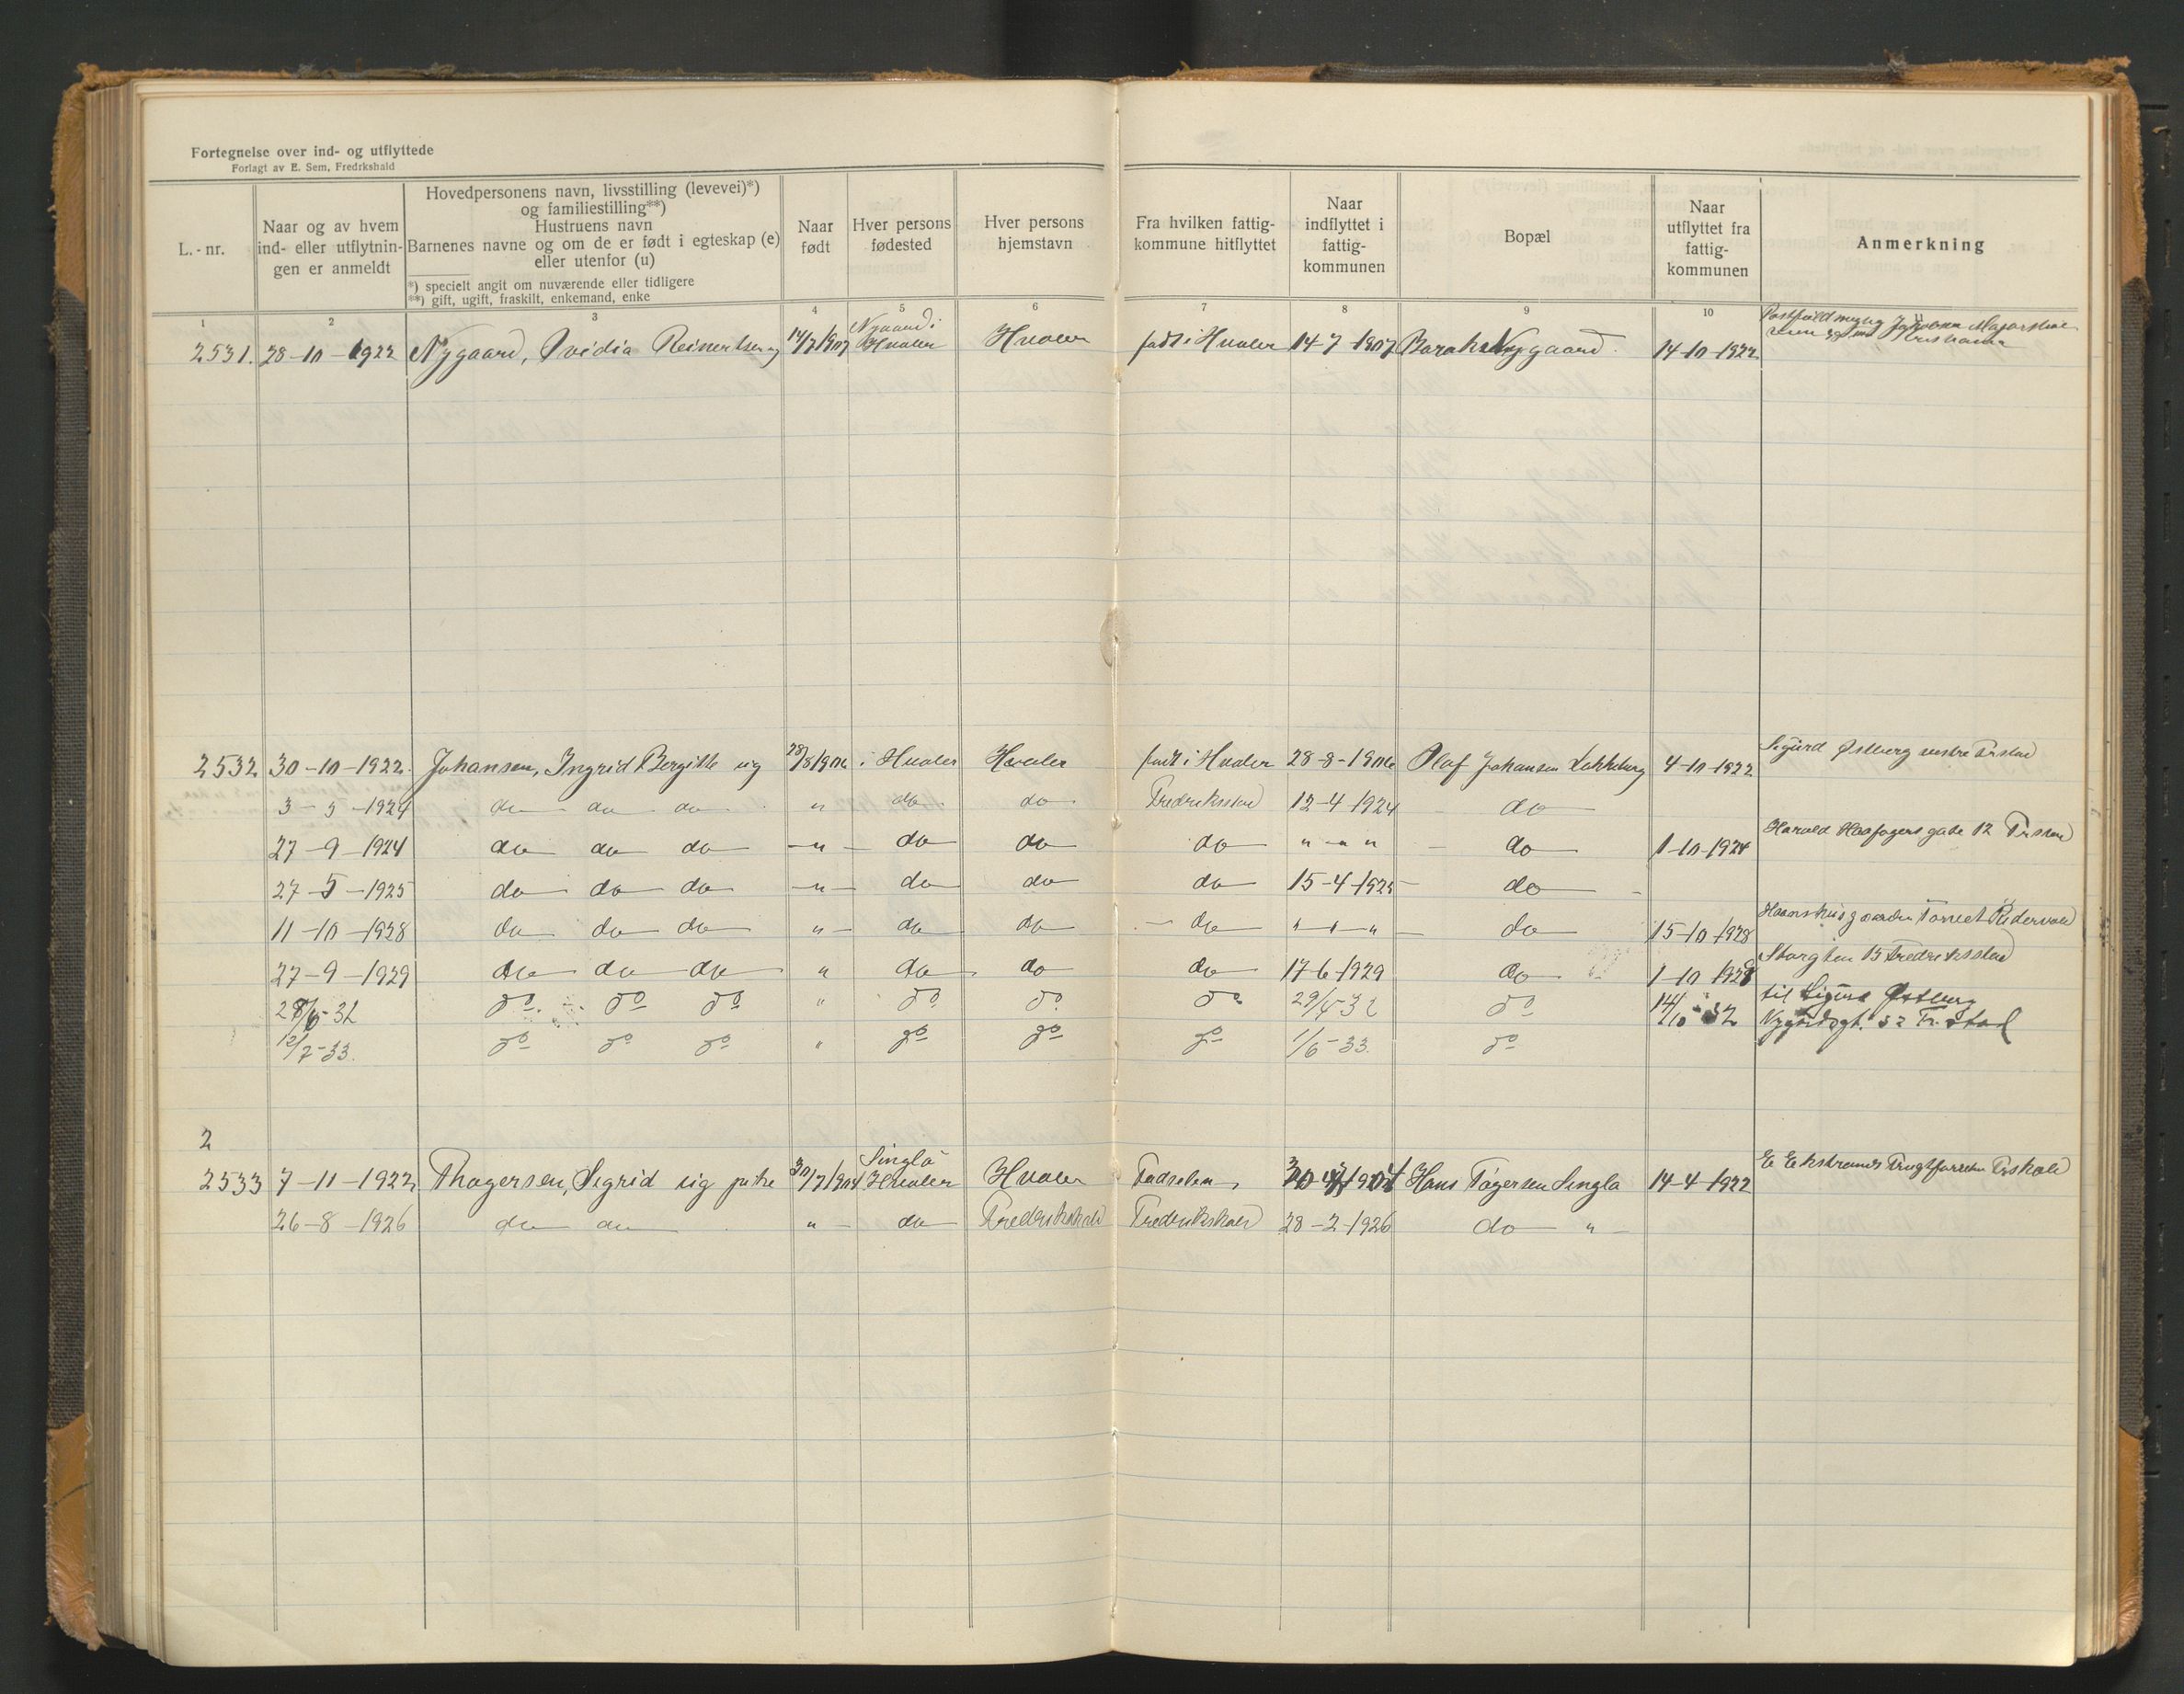 Fortegnelse over ind- og utflyttede
Forlagt av E. Sem, Fredrkshald
L.-nr.
Naar og av hvem ind- eller utflytnin- gen er anmeldt
Hovedpersonens navn, livsstilling (levevei)*)
og familiestilling**)
Hustruens navn
Barnenes navne og om de er født i egteskap (e)
eller utenfor (u)
*) specielt angit om nuværende eller tidligere
**) gift, ugift, fraskilt, enkemand, enke
Naar født
Hver persons fødested
Hver persons hjemstavn
Fra hvilken fattig- kommune hitflyttet
Naar indflyttet i fattig- kommunen
Bopæl
Naar utflyttet fra fattig- kommunen
Anmerkning
1 2 3 4 5 6 7 8 9 10
2531. 28-10-1922 Nygaard, Ovidia Reinertsen 14/7/1907 Nygaard i Hvaler Hvaler født i Hvaler 14-7-1907 Nygaard. 14-10-1922
2532 30-10-1922. Johansen, Ingrid Bergitte ug 28/8/1906 i Hvaler Hvaler født i Hvaler 28-8-1906 Olaf Johansen Løkkeberg 4-10-1922 Sigurd Østberg vestre Frstad
3-5-1924 do do do " do do Fredriksstad 12-4-1924 do
27-9-1924 do do do -"- do do do " - " " do 1-10-1924 Harald Haafagers gate 12 Frstad
27-5-1925 do do do -"- do do do 15-4-1925 do
11-10-1928 do do do "- do do do "-"-" do 15-10-1928 Torvet
27-9-1929 do do do " do do do 17-6-1929 do 1-10-1928 Storgten 15 Fredriksstad
28/6-32 do do do " do do do 29/5-32 do 14/10-32 til Sigurd Østberg
12/7-33. do do do " do do do 1/6-33. do Nygaardsgt. 52 Fr.stad
2
2533 7-11-1922 Thøgersen, Sigrid ug pike 30/7/1904 Singlö Hvaler Hvaler Fødselen Hans Tøgersen Singlø 14-4-1922 E Ekstrøms Frugtforretn Frshald
26-8-1926 do do "- do Fredrikshald Fredrikshald 28-2-1926 do "-